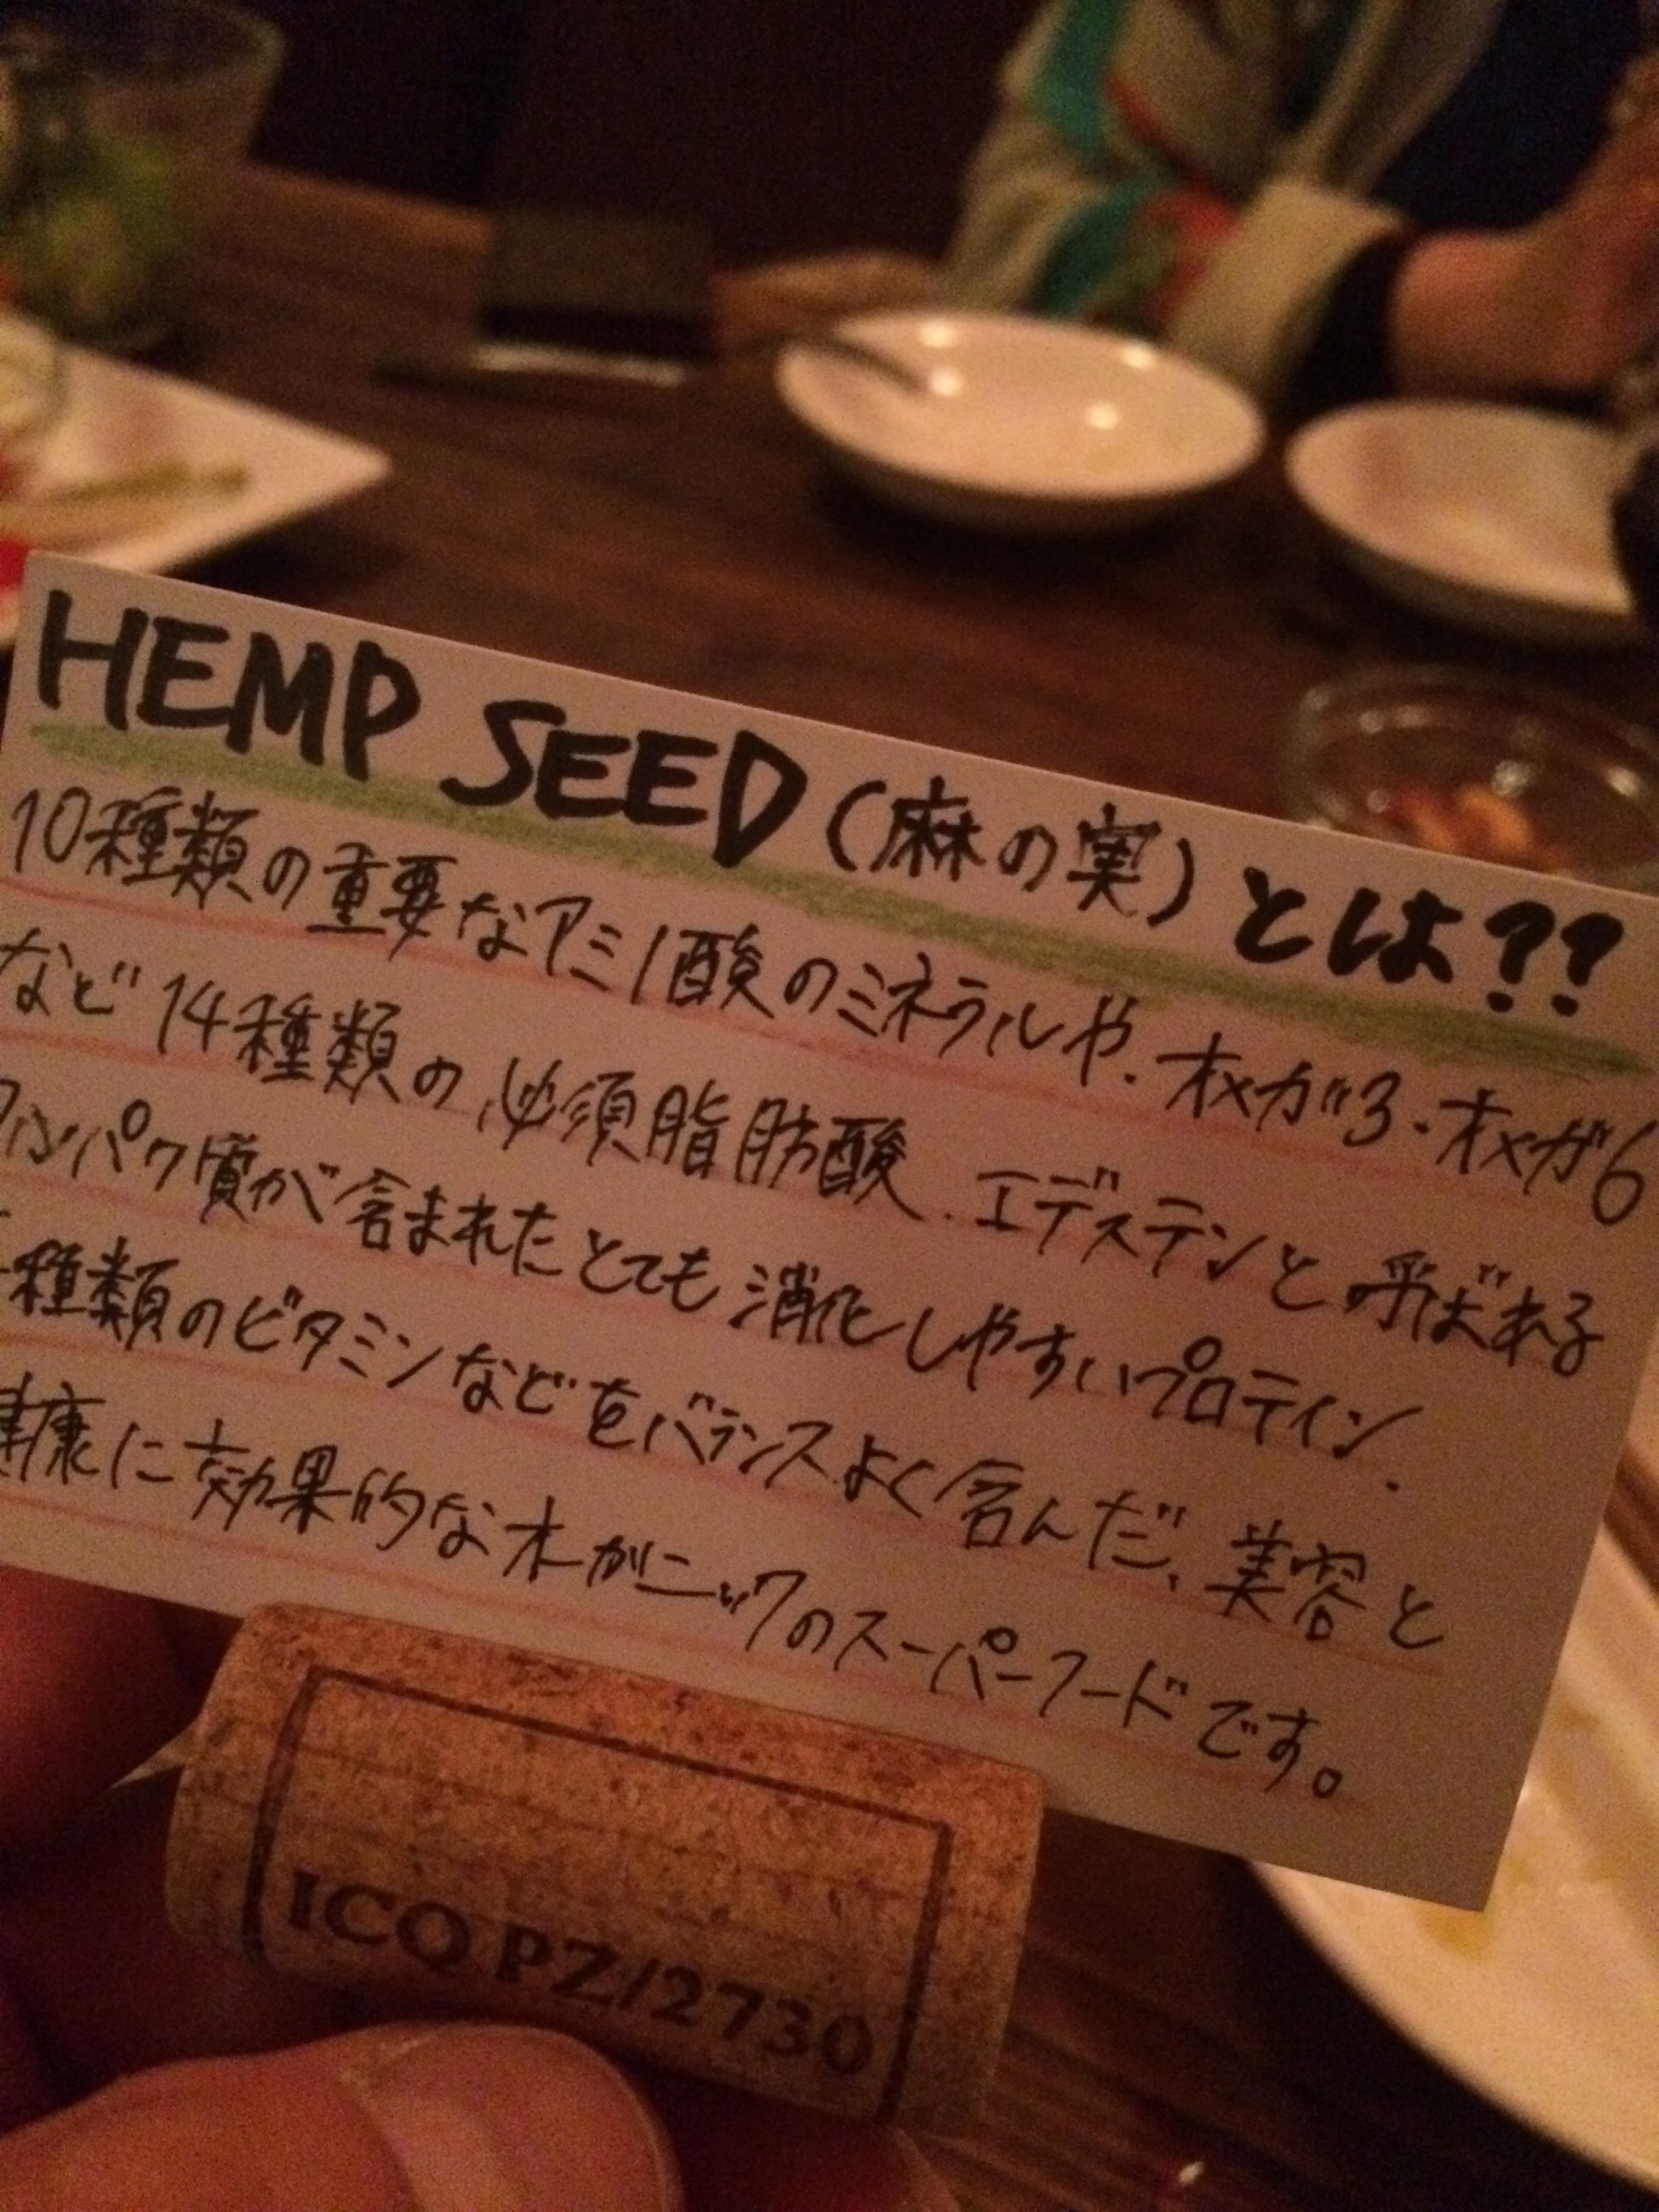 HEMP SEED (麻の実) とは??
10種類の重要なアミノ酸のミネラルや、オメガ3・オメガ6
など14種類の必須脂肪酸、エデステンと呼ばれる
タンパク質が含まれたとても消化しやすいプロテイン、
種類のビタミンなどをバランスよく含んだ、美容と
健康に効果的なオーガニックのスーパーフードです。
ICQ PZ/2730